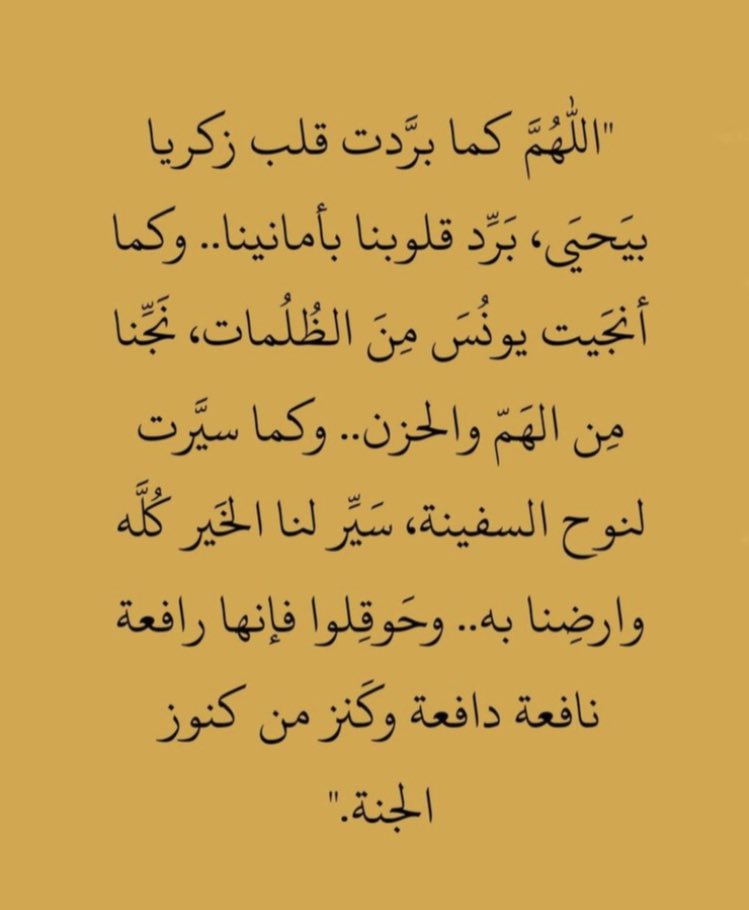 "اللهُمَّ كما برَّدت قلب زكريا
بيَحيَى، بَرِّد قلوبنا بأمانينا.. وكما
أنجَيت يونُسَ مِنَ الظُلُمات، نَجِّنا
مِن الهَمّ والحزن.. وكما سيَّرت
لنوح السفينة، سَيِّر لنا الخَير كُلَّه
وارضِنا به.. وحَوقِلوا فإنها رافعة
نافعة دافعة وكَنز من كنوز
الجنة."